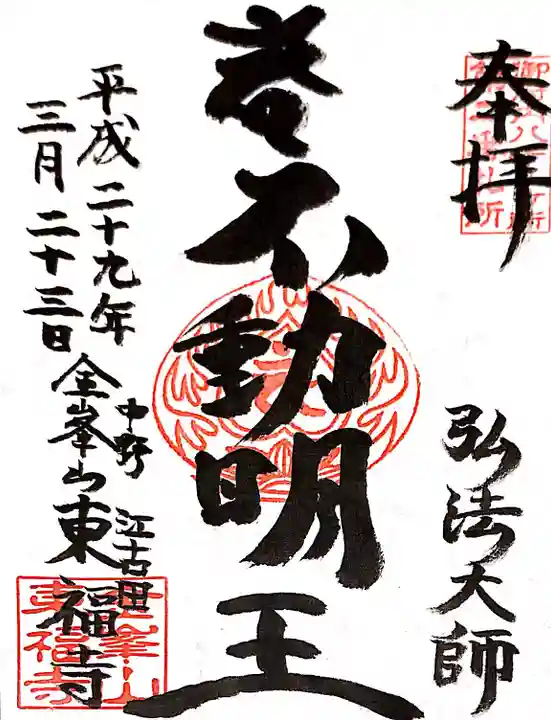 奉拝
弘法大師
不動明王
中野 江古田
金峯山東福寺
平成二十九年
三月二十三日
金峯山
東福寺